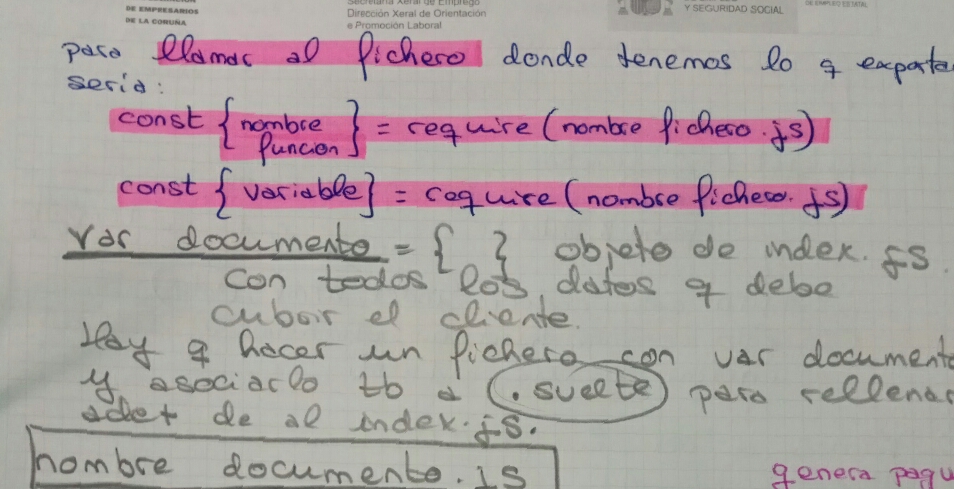 DE EMPRESARIOS
DE LA CORUÑA
Secretaría Xeral de Emprego
Dirección Xeral de Orientación
e Promoción Laboral
Y SEGURIDAD SOCIAL
para llamar al fichero donde tenemos lo q exporta
sería:
const { nombre
funcion } = require (nombre fichero.js)
const { variable } = require (nombre fichero.js)
var documento = { } objeto de index.js.
con todos los datos q debe
cubrir el cliente.
Hay q hacer un fichero con var documento
y asociarlo tb a .svelte para rellenar
de al index.js.
nombre documento.js
genera